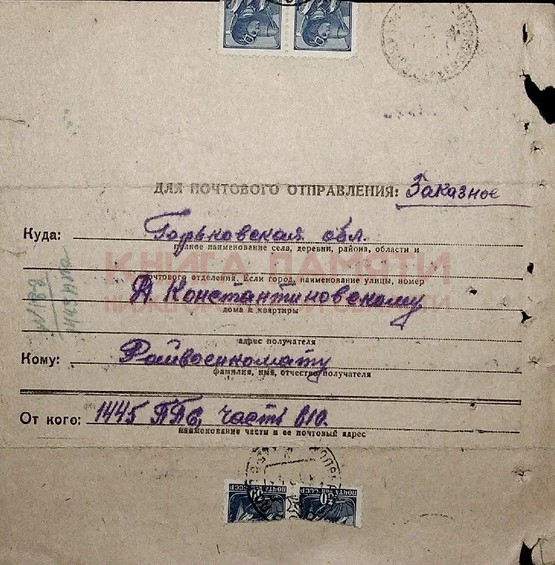 ДЛЯ ПОЧТОВОГО ОТПРАВЛЕНИЯ: Заказное
Куда: Горьковская обл.
полное наименование села, деревни, района, области и
КНИГА ПАМЯТИ
почтового отделения. Если город, наименование улицы, номер
Д. Константиновскому
дома и квартиры
адрес получателя
Кому: Райвоенкомату
фамилия, имя, отчество получателя
От кого: 1445 ППС, часть 810.
наименование части и ее почтовый адрес
50 ПОЧТА СССР
ПОЧТА СССР 50